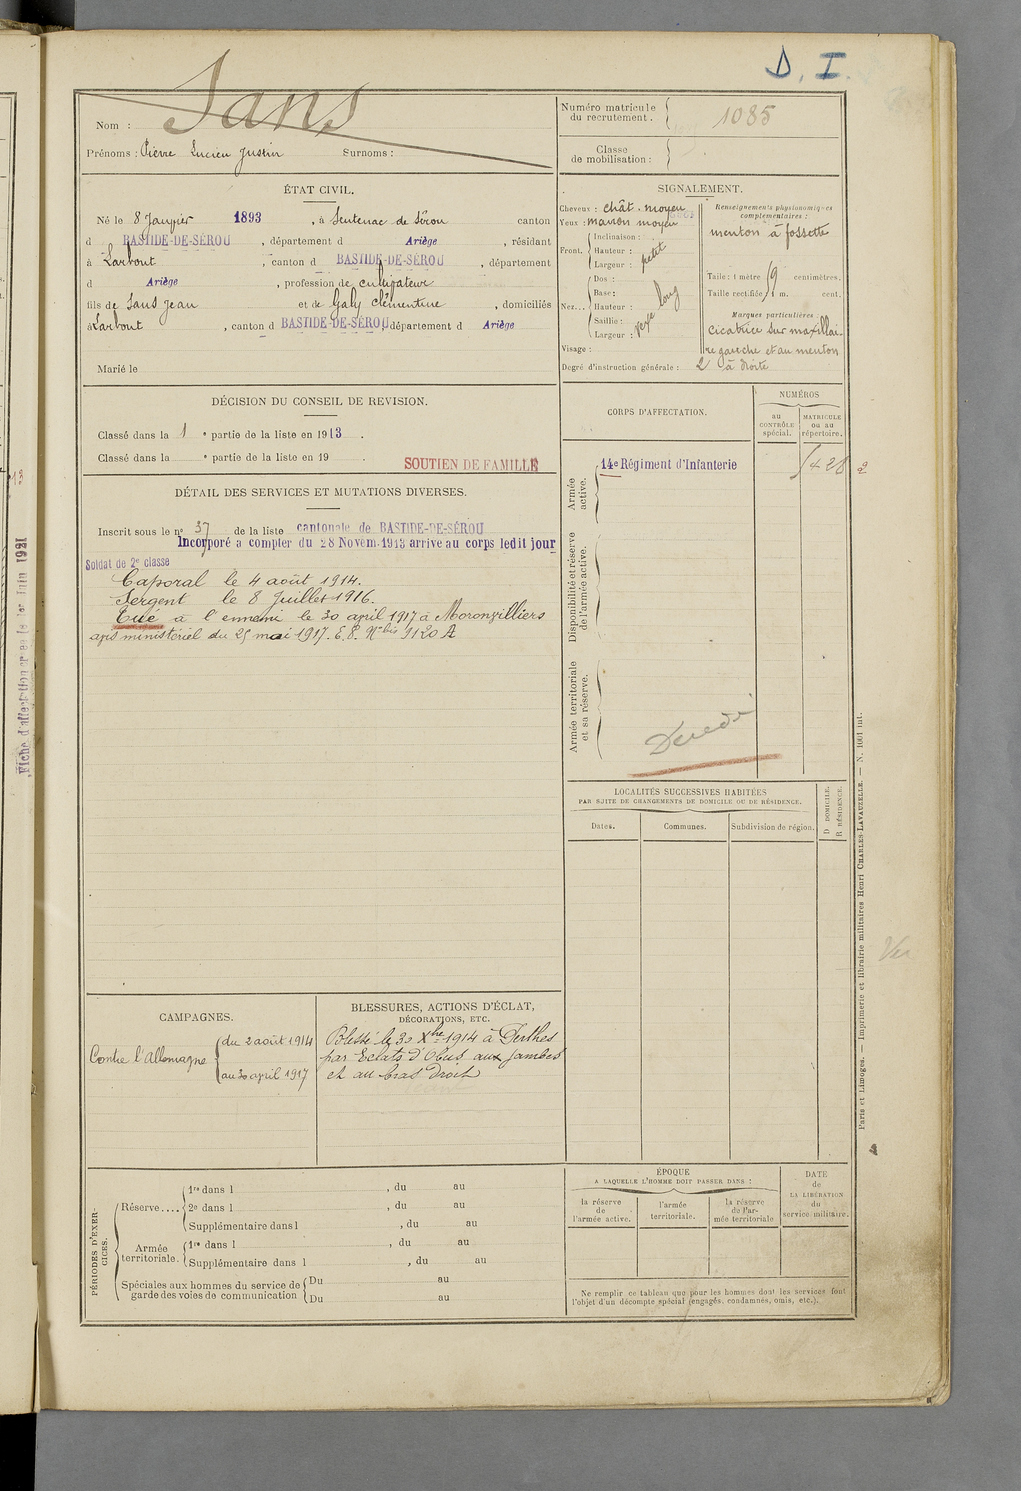 D. I.
Nom : Sans
Prénoms : Pierre Lucien Justin Surnoms :
Numéro matricule du recrutement. 1085
Classe de mobilisation :
ÉTAT CIVIL.
Né le 8 Janvier 1893, à Sentenac de Sérou canton
d BASTIDE-DE-SÉROU, département d Ariège, résidant
à Larbont, canton d BASTIDE-DE-SÉROU, département
d Ariège, profession de cultivateur
fils de Sans Jean et de Galy Clémentine, domiciliés
à Larbont, canton d BASTIDE-DE-SÉROU département d Ariège
Marié le
SIGNALEMENT.
Cheveux : chât. moyen
Yeux : marron moyen
Front. Inclinaison :
Hauteur : petit
Largeur :
Nez... Dos :
Base :
Hauteur : long
Saillie :
Largeur :
Visage :
Degré d'instruction générale : 2
Renseignements physionomiques complémentaires :
menton à fossette
Taille : 1 mètre centimètres.
Taille rectifiée 1 m. cent.
Marques particulières :
cicatrice sur maxillai-
re gauche et au menton
à droite
DÉCISION DU CONSEIL DE REVISION.
Classé dans la 1 e partie de la liste en 1913.
Classé dans la e partie de la liste en 19
SOUTIEN DE FAMILLE
DÉTAIL DES SERVICES ET MUTATIONS DIVERSES.
Inscrit sous le nº 37 de la liste cantonale de BASTIDE-DE-SÉROU
Incorporé à compter du 28 Novem. 1913 arrive au corps ledit jour
Soldat de 2e classe
Caporal le 4 août 1914.
Sergent le 8 Juillet 1916.
Tué à l'ennemi le 30 april 1917 à Moronvilliers
avis ministériel du 25 mai 1917. E.P. Nbis 9120 A
CORPS D'AFFECTATION.
NUMÉROS
au CONTRÔLE spécial.
MATRICULE ou au répertoire.
Armée active.
14e Régiment d'Infanterie
Disponibilité et réserve de l'armée active.
Armée territoriale et sa réserve.
LOCALITÉS SUCCESSIVES HABITÉES
PAR SUITE DE CHANGEMENTS DE DOMICILE OU DE RÉSIDENCE.
Dates.
Communes.
Subdivision de région.
D DOMICILE.
R RÉSIDENCE.
CAMPAGNES.
Contre l'Allemagne du 2 août 1914
au 30 april 1917
BLESSURES, ACTIONS D'ÉCLAT,
DÉCORATIONS, ETC.
Blessé le 30 Xbre 1914 à Perthes
par Eclats d'Obus aux jambes
et au bras droit
PÉRIODES D'EXERCICES.
Réserve.... 1re dans l , du au
2e dans l , du au
Supplémentaire dans l , du au
Armée territoriale. 1re dans l , du au
Supplémentaire dans l , du au
Spéciales aux hommes du service de garde des voies de communication
Du au
Du au
ÉPOQUE
A LAQUELLE L'HOMME DOIT PASSER DANS :
la réserve de l'armée active.
l'armée territoriale.
la réserve de l'armée territoriale
DATE de LA LIBÉRATION du service militaire.
Ne remplir ce tableau que pour les hommes dont les services font
l'objet d'un décompte spécial (engagés, condamnés, omis, etc.).
Paris et Limoges. — Imprimerie et librairie militaires Henri CHARLES-LAVAUZELLE. — N. 1001 int.